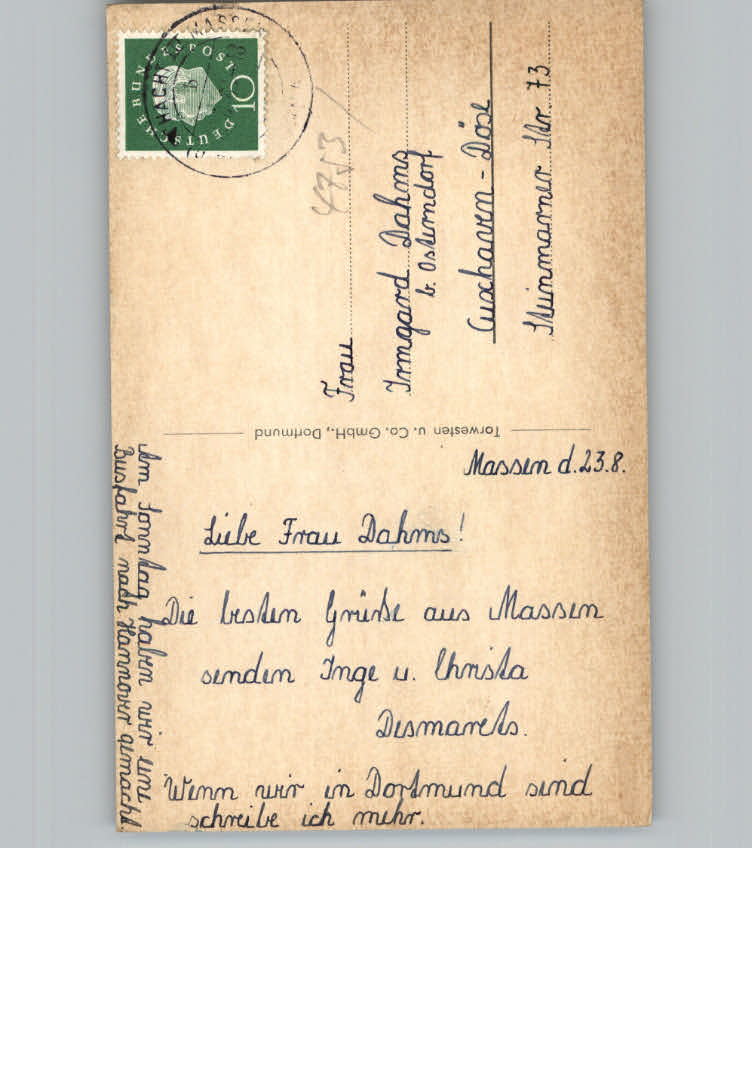 Massen d. 23.8.
Liebe Frau Dahms!
Die besten Grüße aus Massen
senden Inge u. Christa
Desmarets.
Wenn wir in Dortmund sind
schreibe ich mehr.
Am Sonntag haben wir eine
Busfahrt nach Hannover gemacht
Frau
Irmgard Dahms
b. Osterndorf
Cuxhaven-Döse
Steinmarner Str. 73
4753
Torwesten u. Co. GmbH., Dortmund
DEUTSCHE BUNDESPOST
10